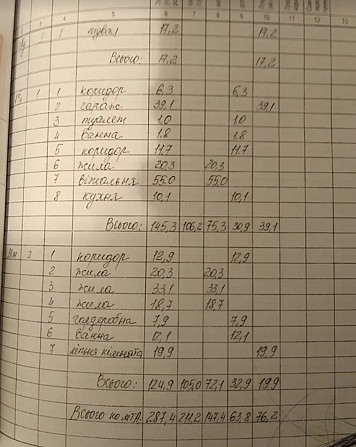 3 4 5 6 7 8 9 10 11 12 13
1 підвал 17,2 17,2
Всього: 17,2 17,2
1 1 коридор 6,3 6,3
2 гараж 39,1 39,1
3 туалет 1,0 1,0
4 ванна 1,8 1,8
5 коридор 11,7 11,7
6 жила 20,3 20,3
7 вітальня 55,0 55,0
8 кухня 10,1 10,1
Всього: 145,3 106,2 75,3 30,9 39,1
2 1 коридор 12,9 12,9
2 жила 20,3 20,3
3 жила 33,1 33,1
4 жила 18,7 18,7
5 гардеробна 7,9 7,9
6 ванна 12,1 12,1
7 літня кімната 19,9 19,9
Всього: 124,9 105,0 72,1 32,9 19,9
Всього 287,4 211,2 147,4 63,8 76,2